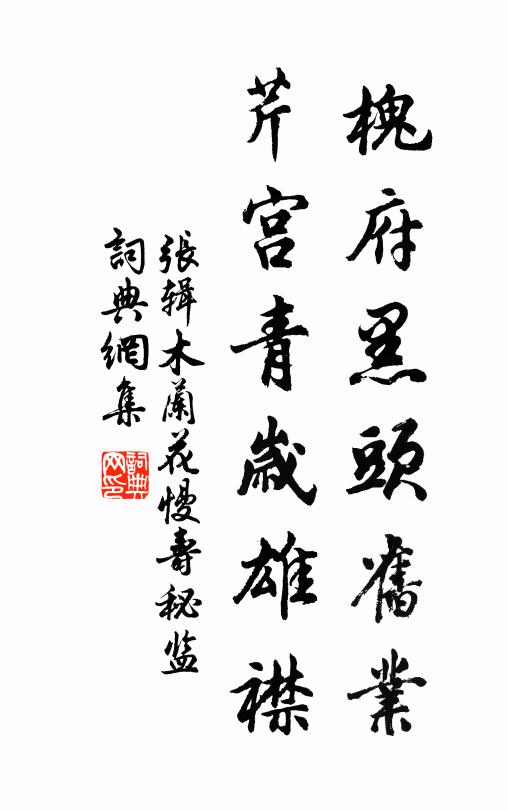 槐府黑頭舊業
芹宫青歲雄襟
張辑木蘭花慢壽秘监
詞典網集
詞典网印